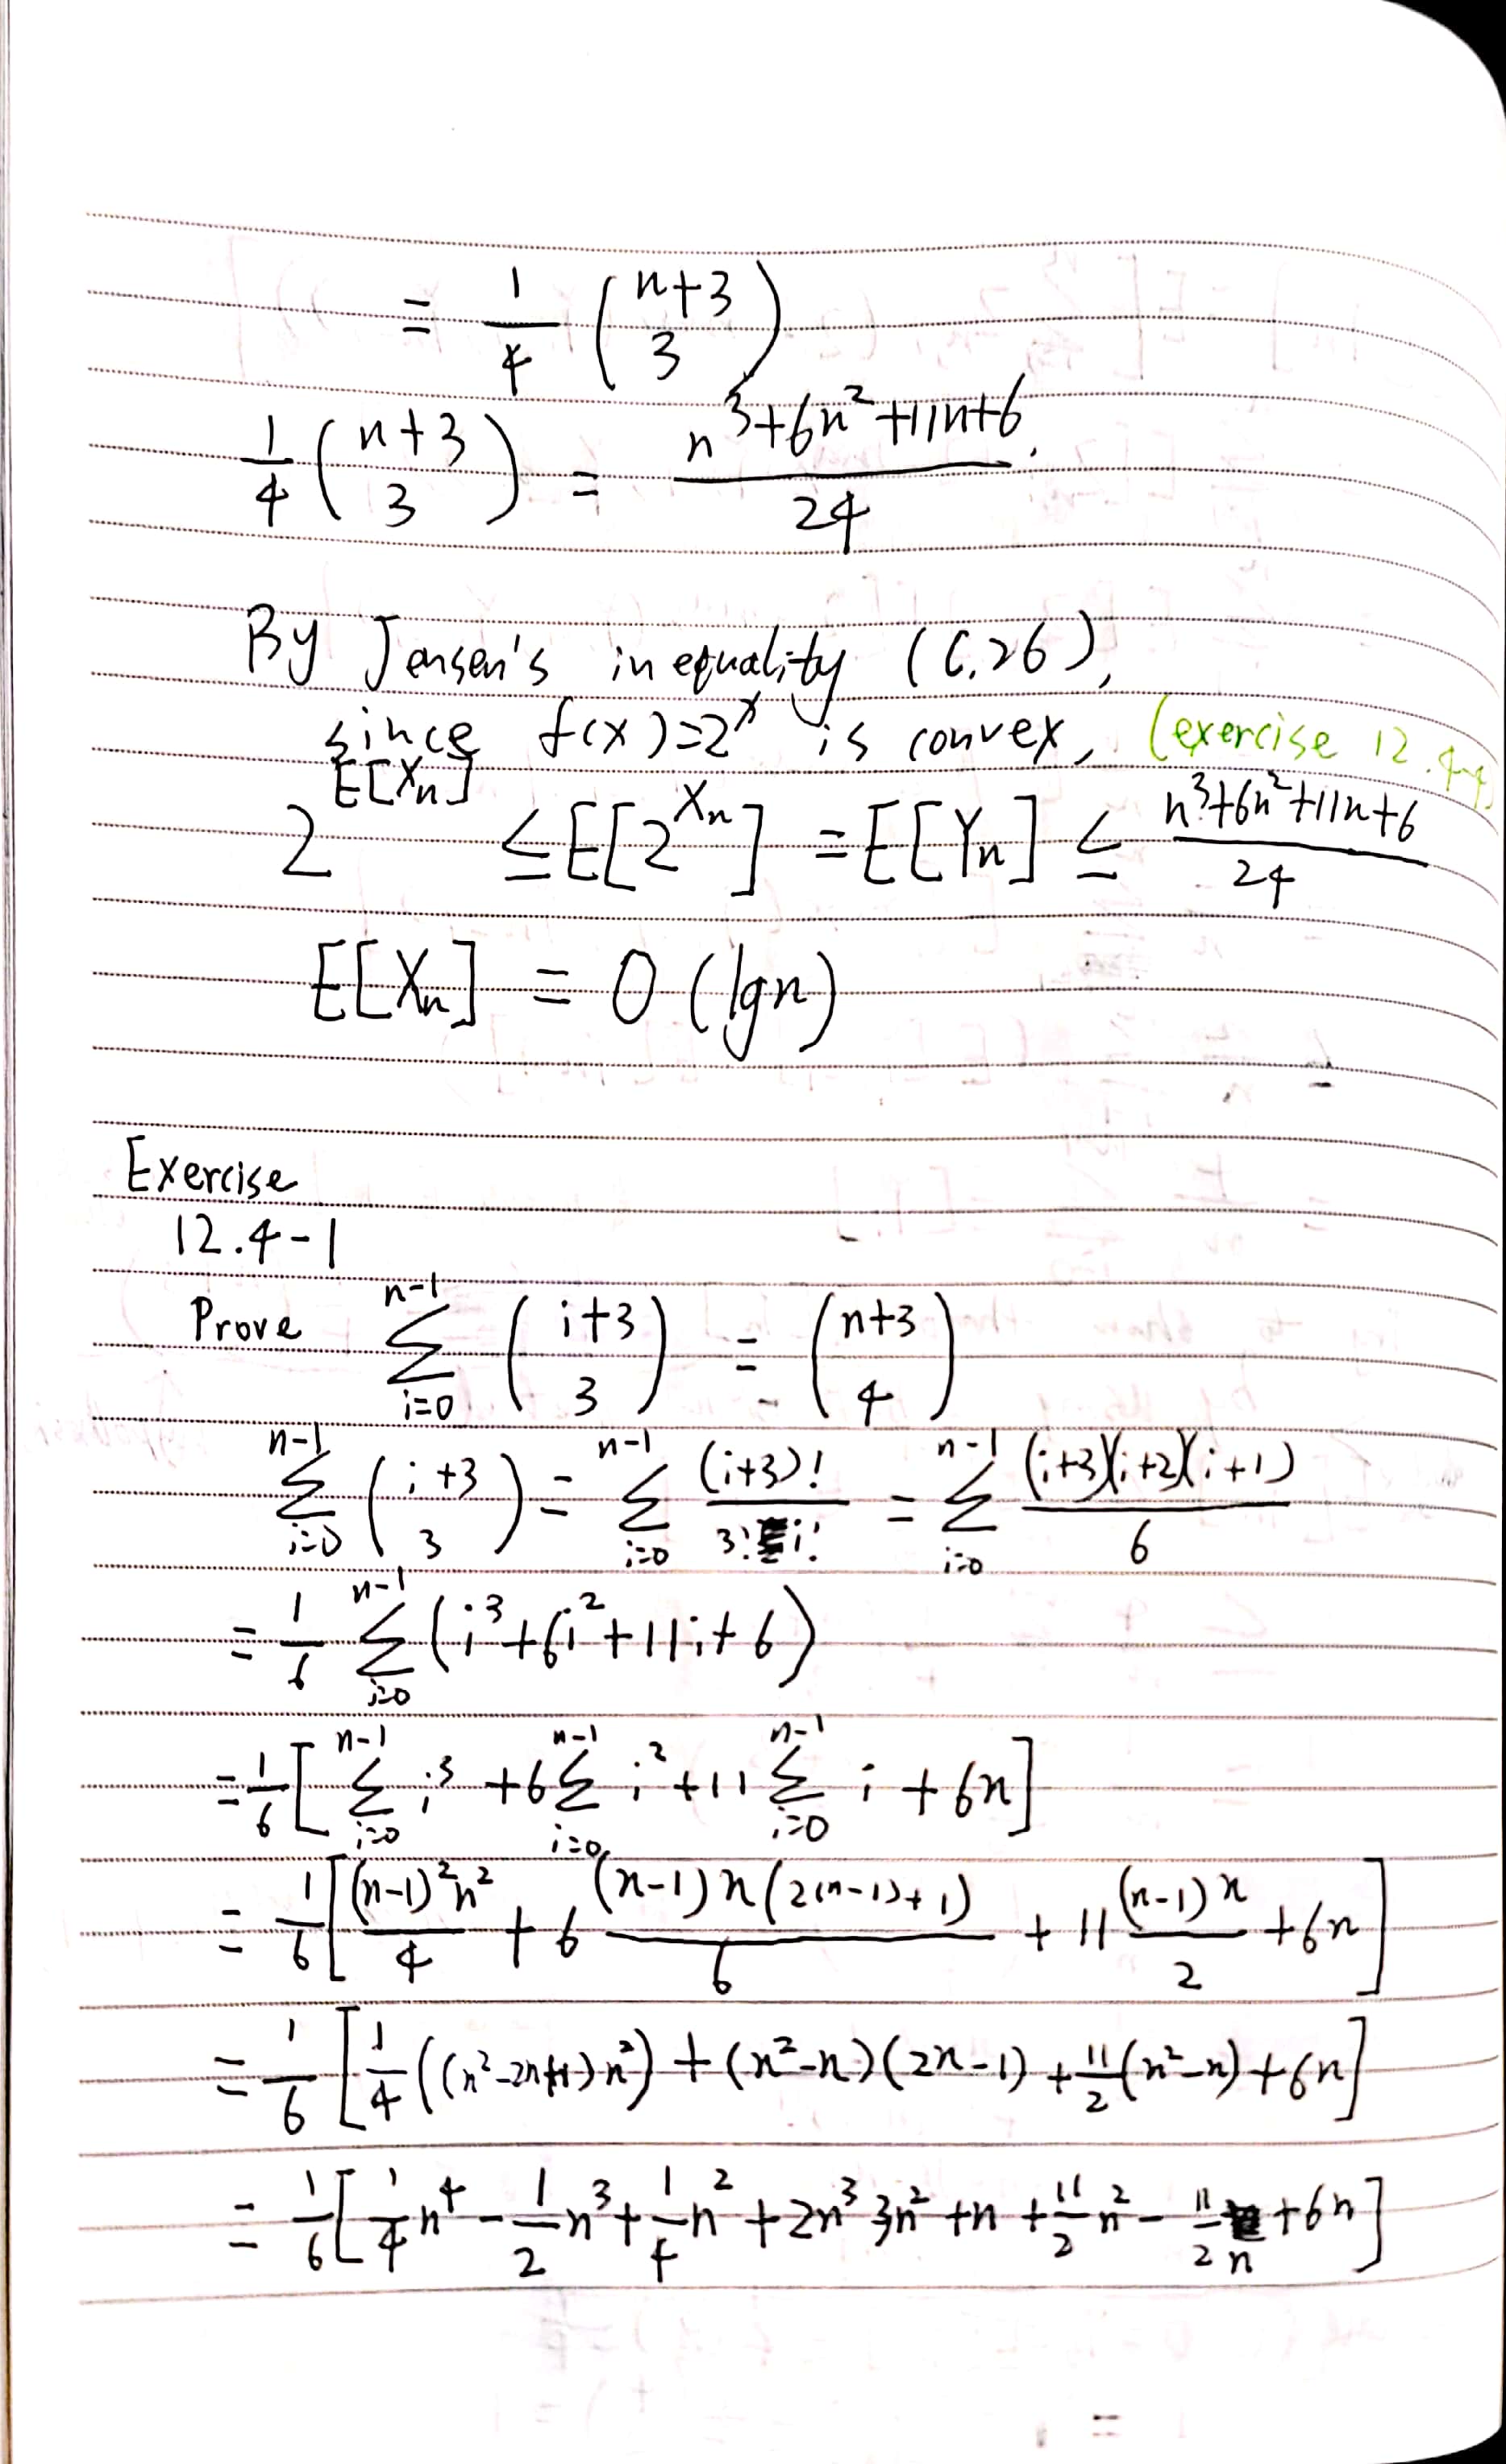 = 1/4 (n+3 3)
1/4 (n+3 3) = n³+6n²+11n+6/24.
By Jensen's inequality (C.26),
since f(x)=2^x is convex, (exercise 12.4-4)
2^E[Xn] ≤ E[2^Xn] = E[Yn] ≤ n³+6n²+11n+6/24
E[Xn] = O(lgn)
Exercise
12.4-1
Prove ∑_{i=0}^{n-1} (i+3 3) = (n+3 4)
∑_{i=0}^{n-1} (i+3 3) = ∑_{i=0}^{n-1} (i+3)!/3!i! = ∑_{i=0}^{n-1} (i+3)(i+2)(i+1)/6
= 1/6 ∑_{i=0}^{n-1} (i³+6i²+11i+6)
= 1/6 [∑_{i=0}^{n-1} i³ + 6∑_{i=0}^{n-1} i² + 11∑_{i=0}^{n-1} i + 6n]
= 1/6 [(n-1)²n²/4 + 6 (n-1)n(2(n-1)+1)/6 + 11 (n-1)n/2 + 6n]
= 1/6 [1/4((n²-2n+1)n²) + (n²-n)(2n-1) + 11/2(n²-n) + 6n]
= 1/6 [1/4n⁴ - 1/2n³ + 1/4n² + 2n³ 3n² + n + 11/2n² - 11/2n + 6n]